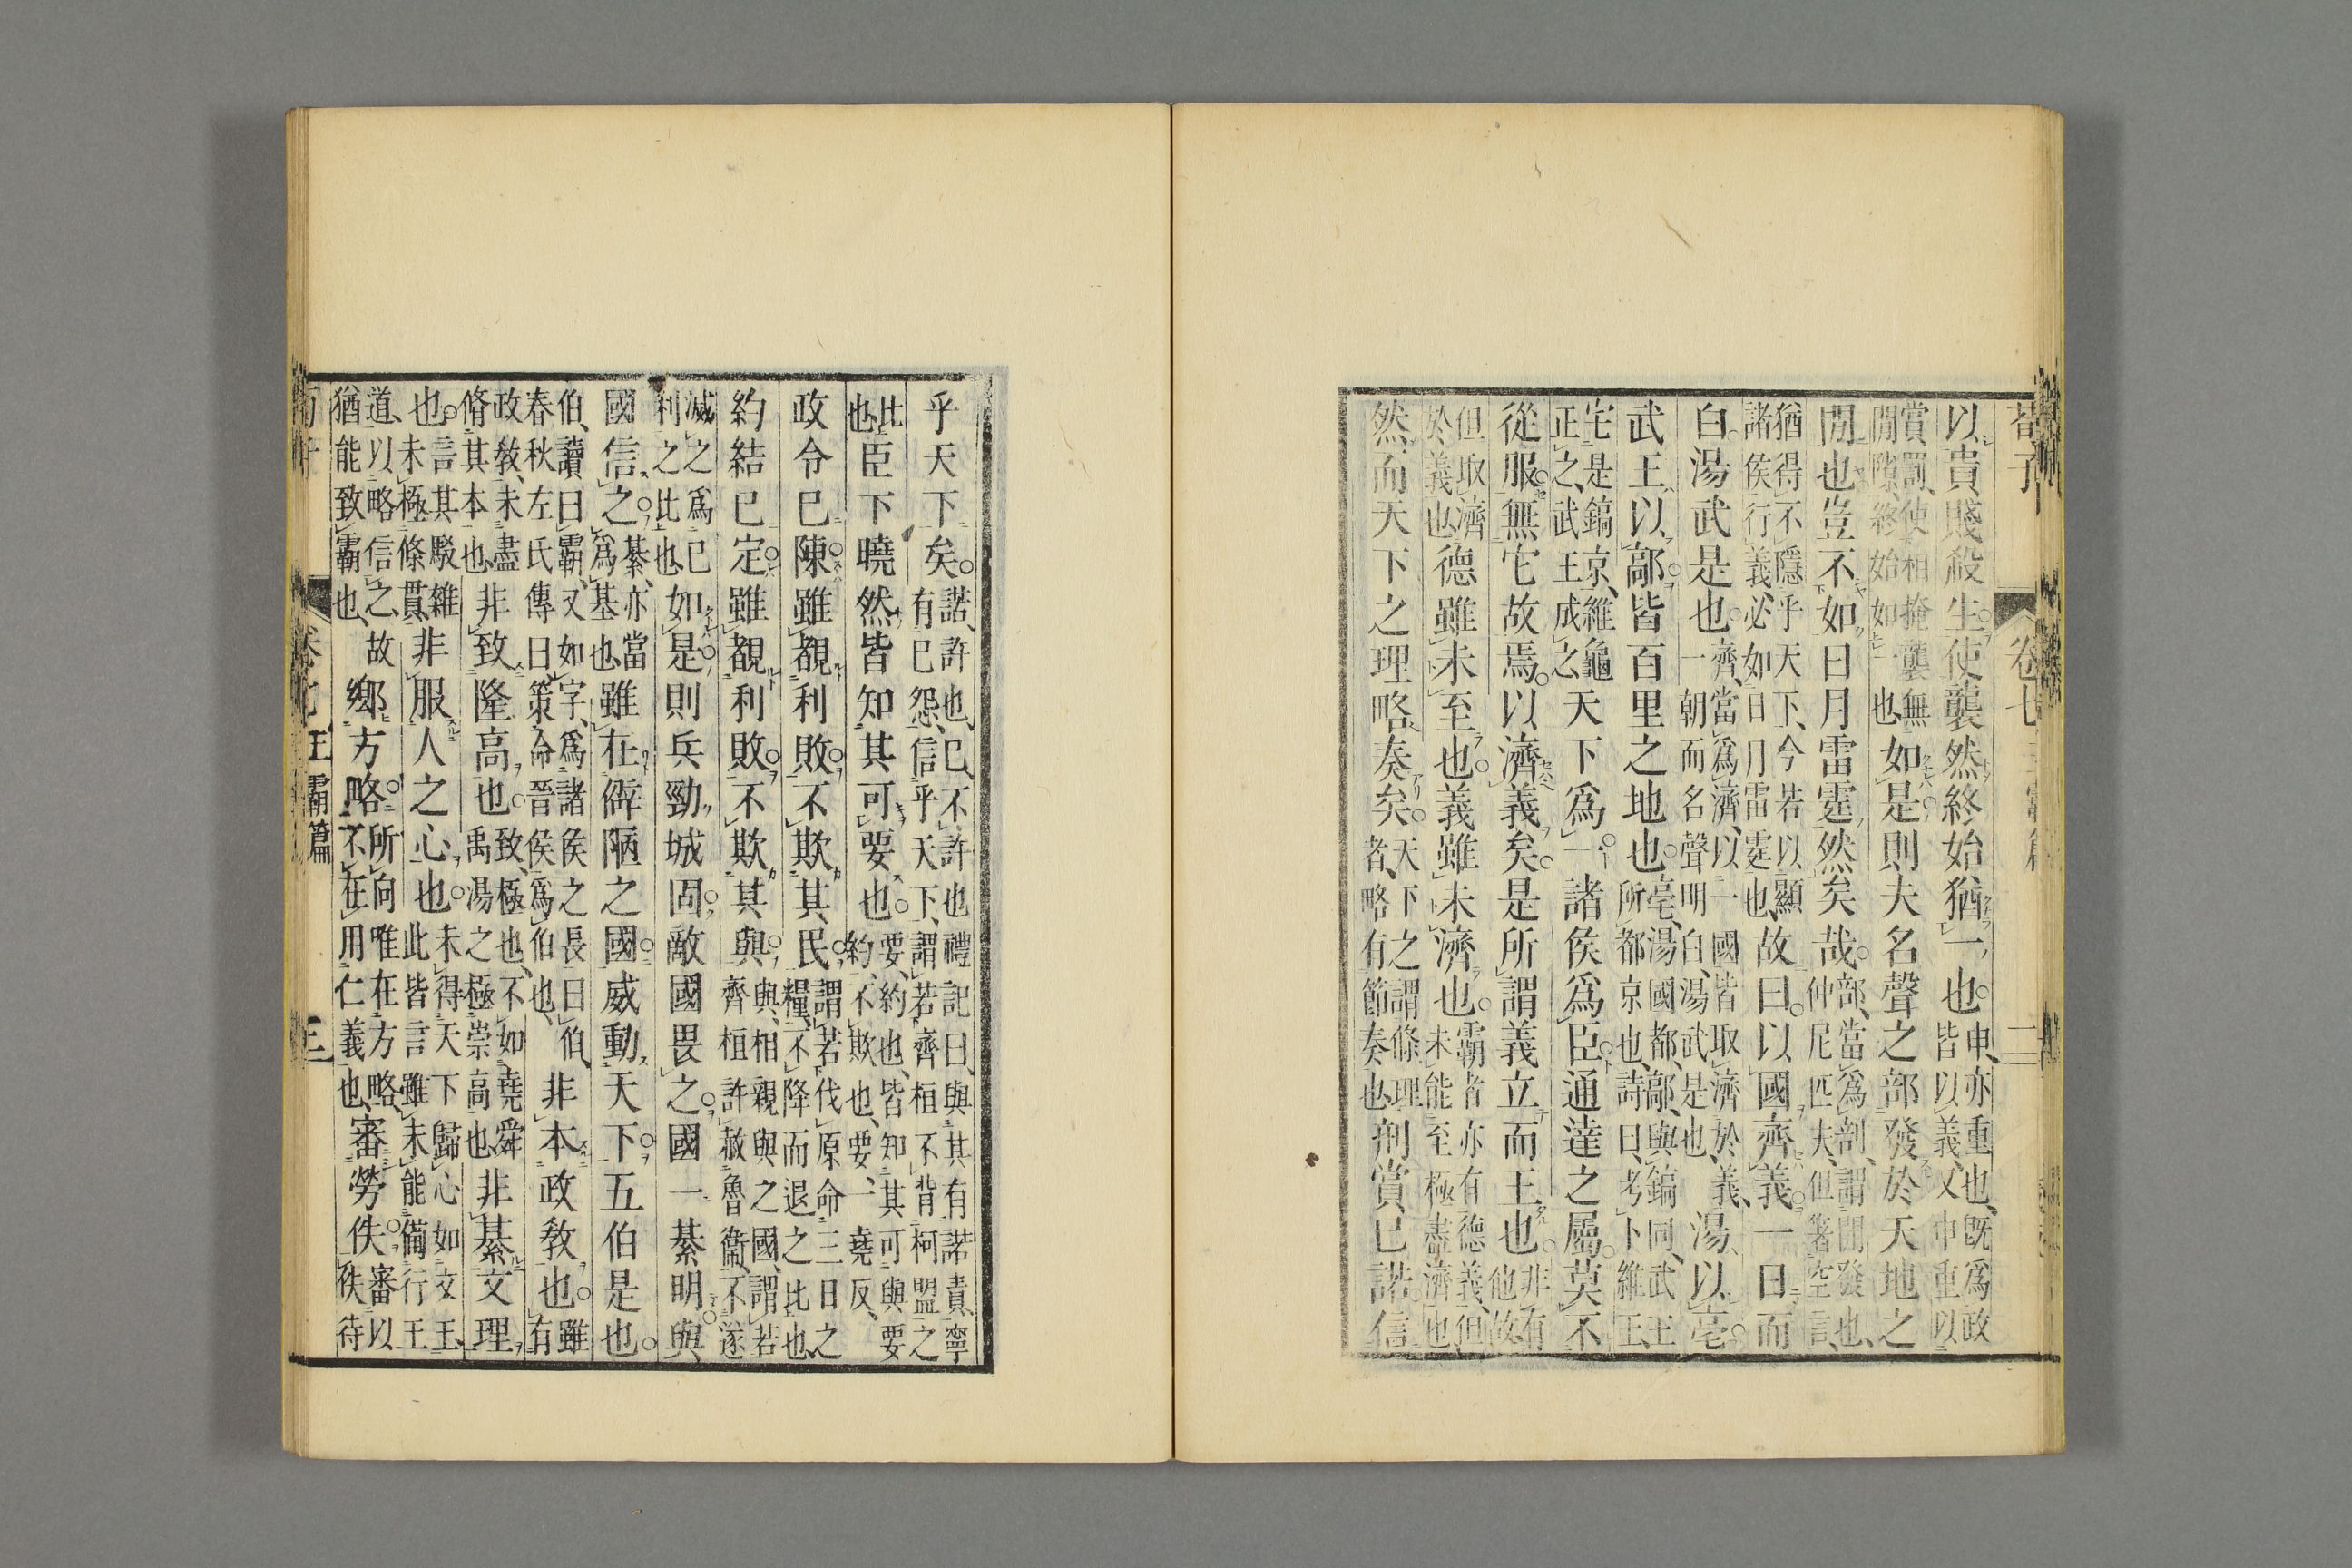 荀子 卷七 王霸篇 二
以貴賤殺生使襲然終始猶一也申亦重也既為政皆以義又申重以
賞罰使相掩襲無間隙終始如一也如是則夫名聲之部發於天地之
間也豈不如日月雷霆然矣哉部當為剖謂開發也仲尼匹夫但箸空言
猶得不隱乎天下今若以顯諸侯行義必如日月雷霆也故曰以國齊義一日而
白湯武是也齊當為濟以一國皆取濟於義一朝而名聲明白湯武是也湯以亳
武王以鄗皆百里之地也亳湯國都鄗與鎬同武王所都京也詩曰考卜維王
宅是鎬京維龜正之武王成之天下為一諸侯為臣通達之屬莫不
從服無它故焉以濟義矣是所謂義立而王也非有他故
但取濟於義也德雖未至也義雖未濟也霸者亦有德義但未能至極盡濟也
然而天下之理略奏矣天下之謂條理者略有節奏也刑賞已諾信
乎天下矣諾許也已不許也禮記曰與其有諾責寧有已怨信乎天下謂若齊桓不背柯盟之
比也臣下曉然皆知其可要也要約也皆知其可與要約不欺也要一堯反
政令已陳雖覩利敗不欺其民謂若伐原命三日之糧不降而退之比也
約結已定雖覩利敗不欺其與與相親與之國謂若齊桓許赦魯衞不遂
滅之為己利之比也如是則兵勁城固敵國畏之國一綦明與
國信之綦亦當為基也雖在僻陋之國威動天下五伯是也
伯讀曰霸又如字為諸侯之長曰伯春秋左氏傳曰策命晉侯為伯也非本政教也雖有
政教未盡脩其本也非致隆高也致極也不如堯舜禹湯之極崇高也非綦文理
也言其駁雜未極條貫非服人之心也未得天下歸心如文王此皆言雖未能備行王
道以略信之故猶能致霸也鄉方略所向唯在方略不在用仁義也審勞佚審以佚待
卷七 王霸篇 三